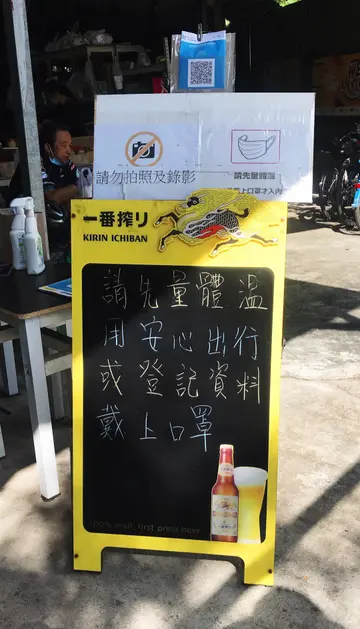 請勿拍照及錄影
請先量體溫
一番搾り
KIRIN ICHIBAN
請先量體溫
用安心出行
或登記資料
戴上口罩
100% malt, first press beer